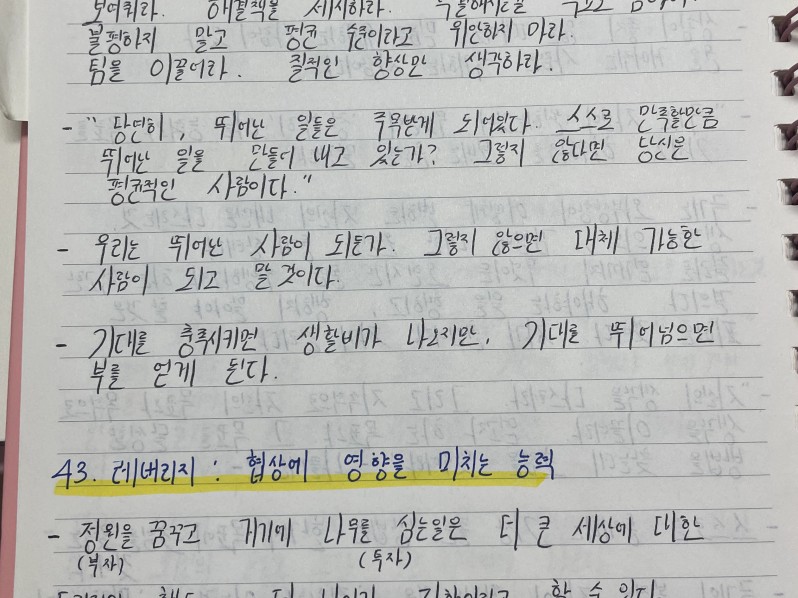 보여줘라. 해결책을 제시하라.
불평하지 말고 평균 수준이라고 위안하지 마라.
팀을 이끌어라. 질적인 향상만 생각하라.
- "당연히, 뛰어난 일들은 주목받게 되어있다. 스스로 만족할만큼
뛰어난 일을 만들어 내고 있는가? 그렇지 않다면 당신은
평균적인 사람이다."
- 우리는 뛰어난 사람이 되든가. 그렇지 않으면 대체 가능한
사람이 되고 말 것이다.
- 기대를 충족시키면 생활비가 나오지만, 기대를 뛰어넘으면
부를 얻게 된다.
43. 레버리지 : 협상에 영향을 미치는 능력
- 정원을 꿈꾸고 거기에 나무를 심는일은 더 큰 세상에 대한
(부자) (투자)
할 수 있다